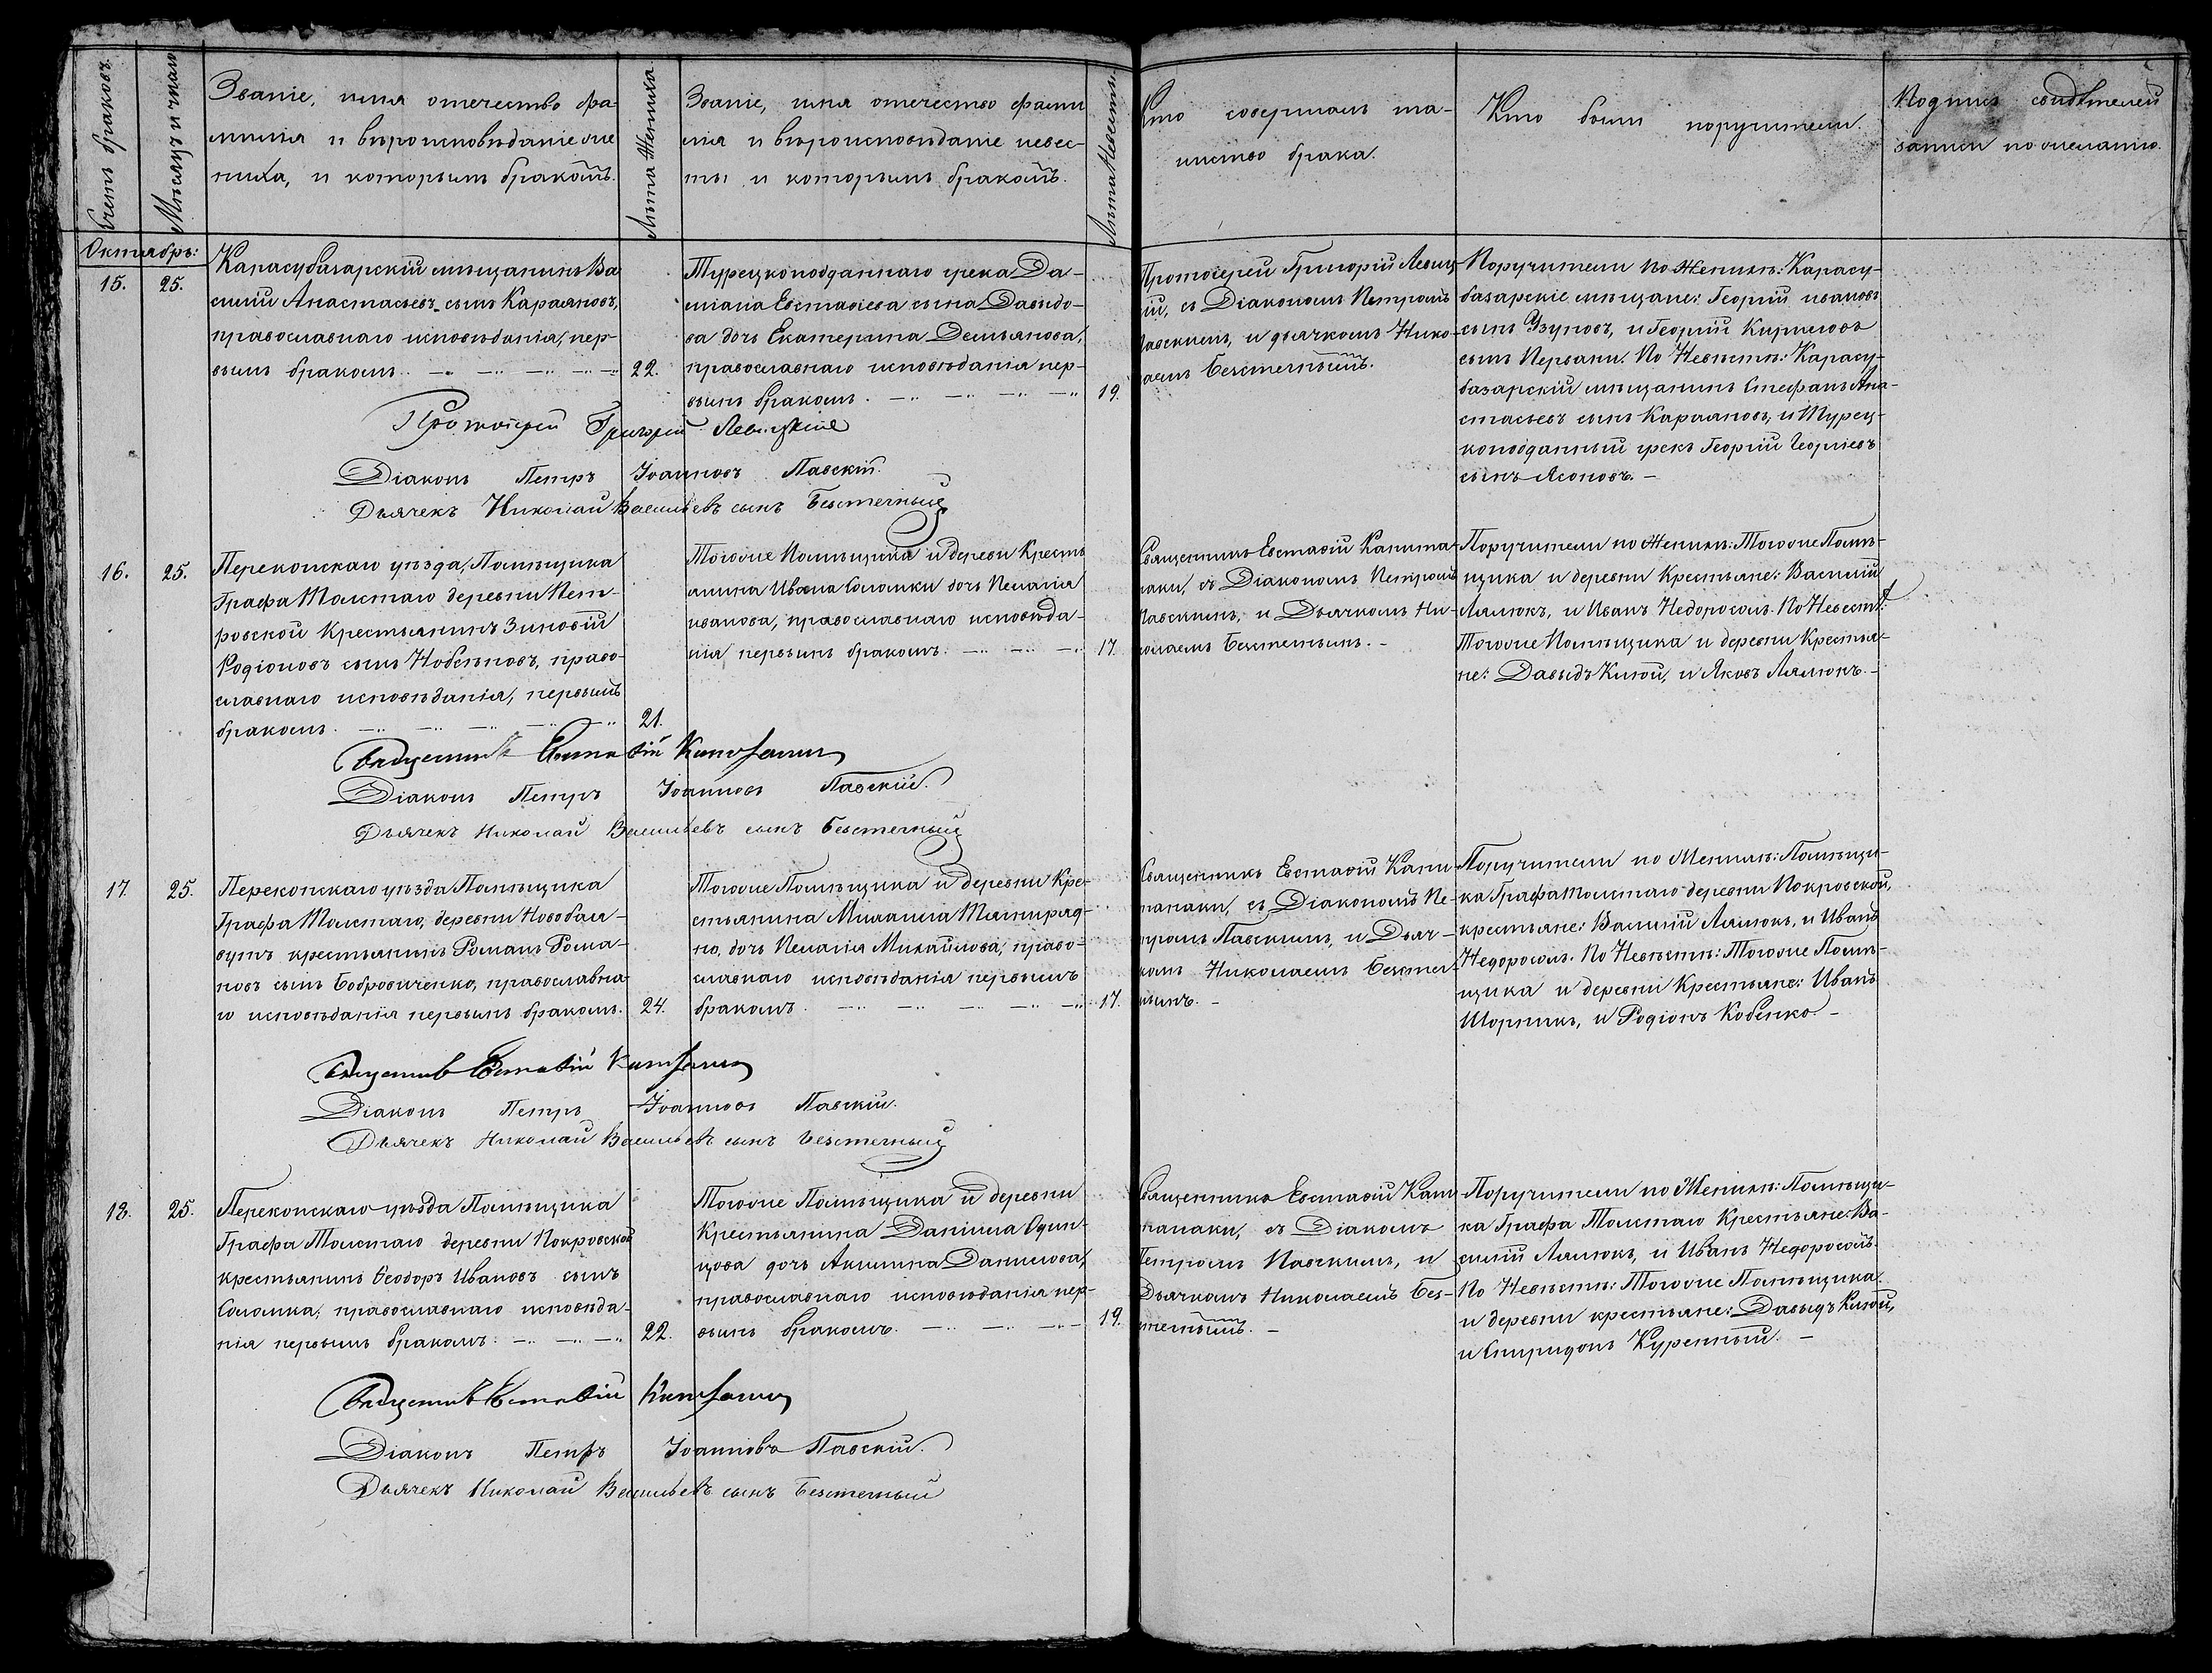 Счетъ браковъ.
Мѣсяцъ и число
Званіе, имя отечество фа-
милія и вѣроисповѣданіе же-
ниха, и которымъ бракомъ.
Лѣта Жениха.
Званіе, имя отечество фами
лія и вѣроисповѣданіе невес-
ты и которымъ бракомъ.
Лѣта Невесты.
Кто совершалъ та-
инство брака.
Кто были поручители.
Подпись свидѣтелей
записи по желанію.
Октябрь:
15.
25.
Карасубазарскій мѣщанинъ Ва
силій Анастасьевъ сынъ Караяновъ,
православнаго исповѣданія, пер-
вымъ бракомъ.
22.
Турецкоподданнаго грека Да-
міана Евстаѳіева сына Давыдо-
ва дочь Екатерина Демьянова,
православнаго исповѣданія пер-
вымъ бракомъ.
19.
Протоіерей Григорій Левиц
ій, съ Діакономъ Петромъ
Павскимъ, и дьячкомъ Нико-
лаемъ Безстетнымъ.
Поручители по Женихѣ: Карасу-
базарскіе мѣщане: Георгій ивановъ
сынъ Узуновъ, и Георгій Кириловъ
сынъ Первани. По Невѣстѣ: Карасу-
базарскій мѣщанинъ Стефанъ Ана-
стасьевъ сынъ Караяновъ, и Турец-
коподданный грекъ Георгій Георгіевъ
сынъ Ясоновъ. –
Протоіерей Григорій Левицкій
Діаконъ Петръ Іоанновъ Павскій.
Дьячекъ Николай Васильевъ сынъ
16.
25.
Перекопскаго уѣзда, Помѣщика
Графа Толстаго деревни Пет-
ровской Крестьянинъ Зиновій
Родіоновъ сынъ православ
славнаго исповѣданія, первымъ
бракомъ.
21.
Тогоже Помѣщика и деревни Кресть
янина Ивана Соломки дочь Пелагія
иванова, православнаго исповѣда-
нія первымъ бракомъ.
17.
Священникъ Евстаѳій Капита-
наки, съ Діакономъ Петромъ
Павскимъ, и Дьячкомъ Ни-
колаемъ
Поручители по Женихѣ: Тогоже Помѣ-
щика и деревни Крестьяне: Василій
Лялюкъ, и Иванъ Недоросолъ. По Невестѣ:
Тогоже Помѣщика и деревни Крестья-
не: Давыдъ и Яковъ Лялюкъ. –
Священникъ Евстаѳій Капитанаки
Діаконъ Петръ Іоанновъ Павскій.
Дьячекъ Николай Васильевъ сынъ
17.
25.
Перекопскаго уѣзда Помѣщика
Графа Толстаго, деревни
крестьянинъ Романъ Рома-
новъ сынъ Бобровиченко, православна-
го исповѣданія первымъ бракомъ.
24.
Тогоже Помѣщика и деревни Кре-
стьянина Михаила
дочь Пелагія Михайлова, право-
славнаго исповѣданія первымъ
бракомъ.
17.
Священникъ Евстаѳій Капи-
танаки, съ Діакономъ Пе-
тромъ Павскимъ, и Дьяч-
комъ Николаемъ
Поручители по Женихѣ: Помѣщи-
ка Графа Толстаго деревни Покровской,
крестьяне: Василій Лялюкъ, и Иванъ
Недоросолъ. По Невѣстѣ: Тогоже Помѣ-
щика и деревни Крестьяне: Иванъ
Шорникъ, и Родіонъ Кобенко. –
Священникъ Евстаѳій Капитанаки
Діаконъ Петръ Іоанновъ Павскій.
Дьячекъ Николай Васильевъ сынъ
18.
25.
Перекопскаго уѣзда Помѣщика
Графа Толстаго деревни Покровской
крестьянинъ Ѳеодоръ Ивановъ сынъ
Соломка, православнаго исповѣда-
нія первымъ бракомъ.
22.
Тогоже Помѣщика и деревни
Крестьянина Даніила Один-
цова дочь Акилина Данилова,
православнаго исповѣданія пер-
вымъ бракомъ.
19.
Священникъ Евстаѳій Капи
танаки, съ Діакономъ
Петромъ Павскимъ, и
Дьячкомъ Николаемъ
Поручители по Женихѣ: Помѣщи-
ка Графа Толстаго Крестьяне: Ва-
силій Лялюкъ, и Иванъ Недоросолъ.
По Невѣстѣ: Тогоже Помѣщика
и деревни крестьяне: Давыдъ
и Спиридонъ Куренный. –
Священникъ Евстаѳій Капитанаки
Діаконъ Петръ Іоанновъ Павскій.
Дьячекъ Николай Васильевъ сынъ